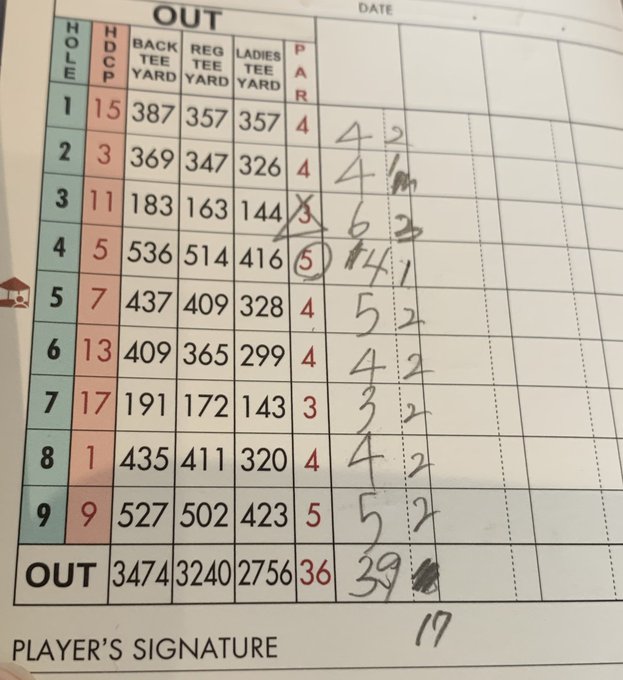 OUT
DATE
HOLE HDCP BACK TEE YARD REG TEE YARD LADIES TEE YARD PAR
1 15 387 357 357 4 4 2
2 3 369 347 326 4 4 1
3 11 183 163 144 3 6
4 5 536 514 416 5 4 1
5 7 437 409 328 4 5 2
6 13 409 365 299 4 4 2
7 17 191 172 143 3 3 2
8 1 435 411 320 4 4 2
9 9 527 502 423 5 5 2
OUT 3474 3240 2756 36 39
17
PLAYER'S SIGNATURE